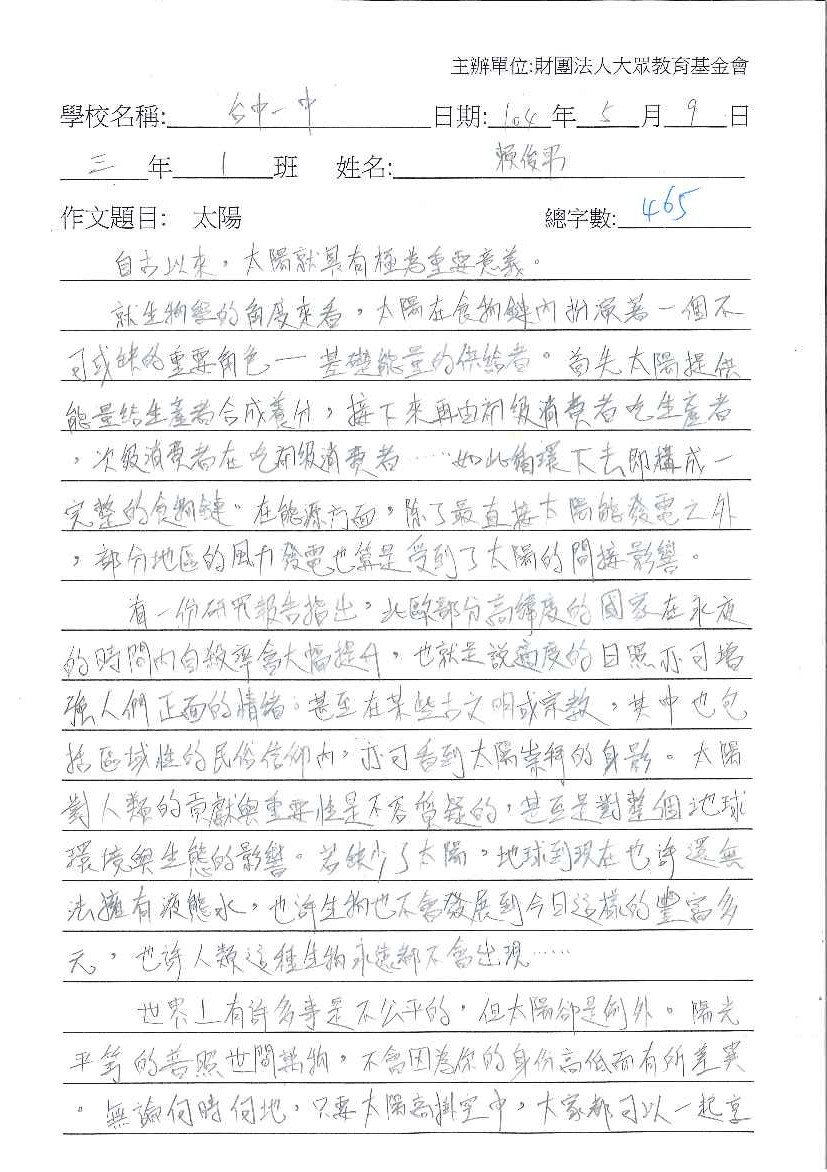 主辦單位:財團法人大眾教育基金會
學校名稱: 台中一中 日期: 104 年 5 月 9 日
三 年 1 班 姓名: 賴俊
作文題目: 太陽 總字數: 465
自古以來,太陽就具有極為重要意義。
就生物鏈的角度來看,太陽在食物鏈內扮演著一個不
可或缺的重要角色—基礎能量的供給者。首先太陽提供
能量給生產者合成養分,接下來再由初級消費者吃生產者
,次級消費者在吃初級消費者……如此循環下去即構成一
完整的食物鏈。在能源方面,除了最直接太陽能發電之外
,部分地區的風力發電也算是受到了太陽的間接影響。
有一份研究報告指出,北歐部分高緯度的國家在永夜
的時間內自殺率會大幅提升,也就是說適度的日照亦可增
強人們正面的情緒。甚至在某些古文明或宗教,其中也包
括區域性的民俗信仰內,亦可看到太陽崇拜的身影。太陽
對人類的貢獻與重要性是不容質疑的,甚至是對整個地球
環境與生態的影響。若缺少了太陽,地球到現在也許還無
法擁有液態水,也許生物也不會發展到今日這樣的豐富多
元,也許人類這種生物永遠都不會出現……
世界上有許多事是不公平的,但太陽卻是例外。陽光
平等的普照世間萬物,不會因為你的身份高低而有所差異
。無論何時何地,只要太陽高掛空中,大家都可以一起享